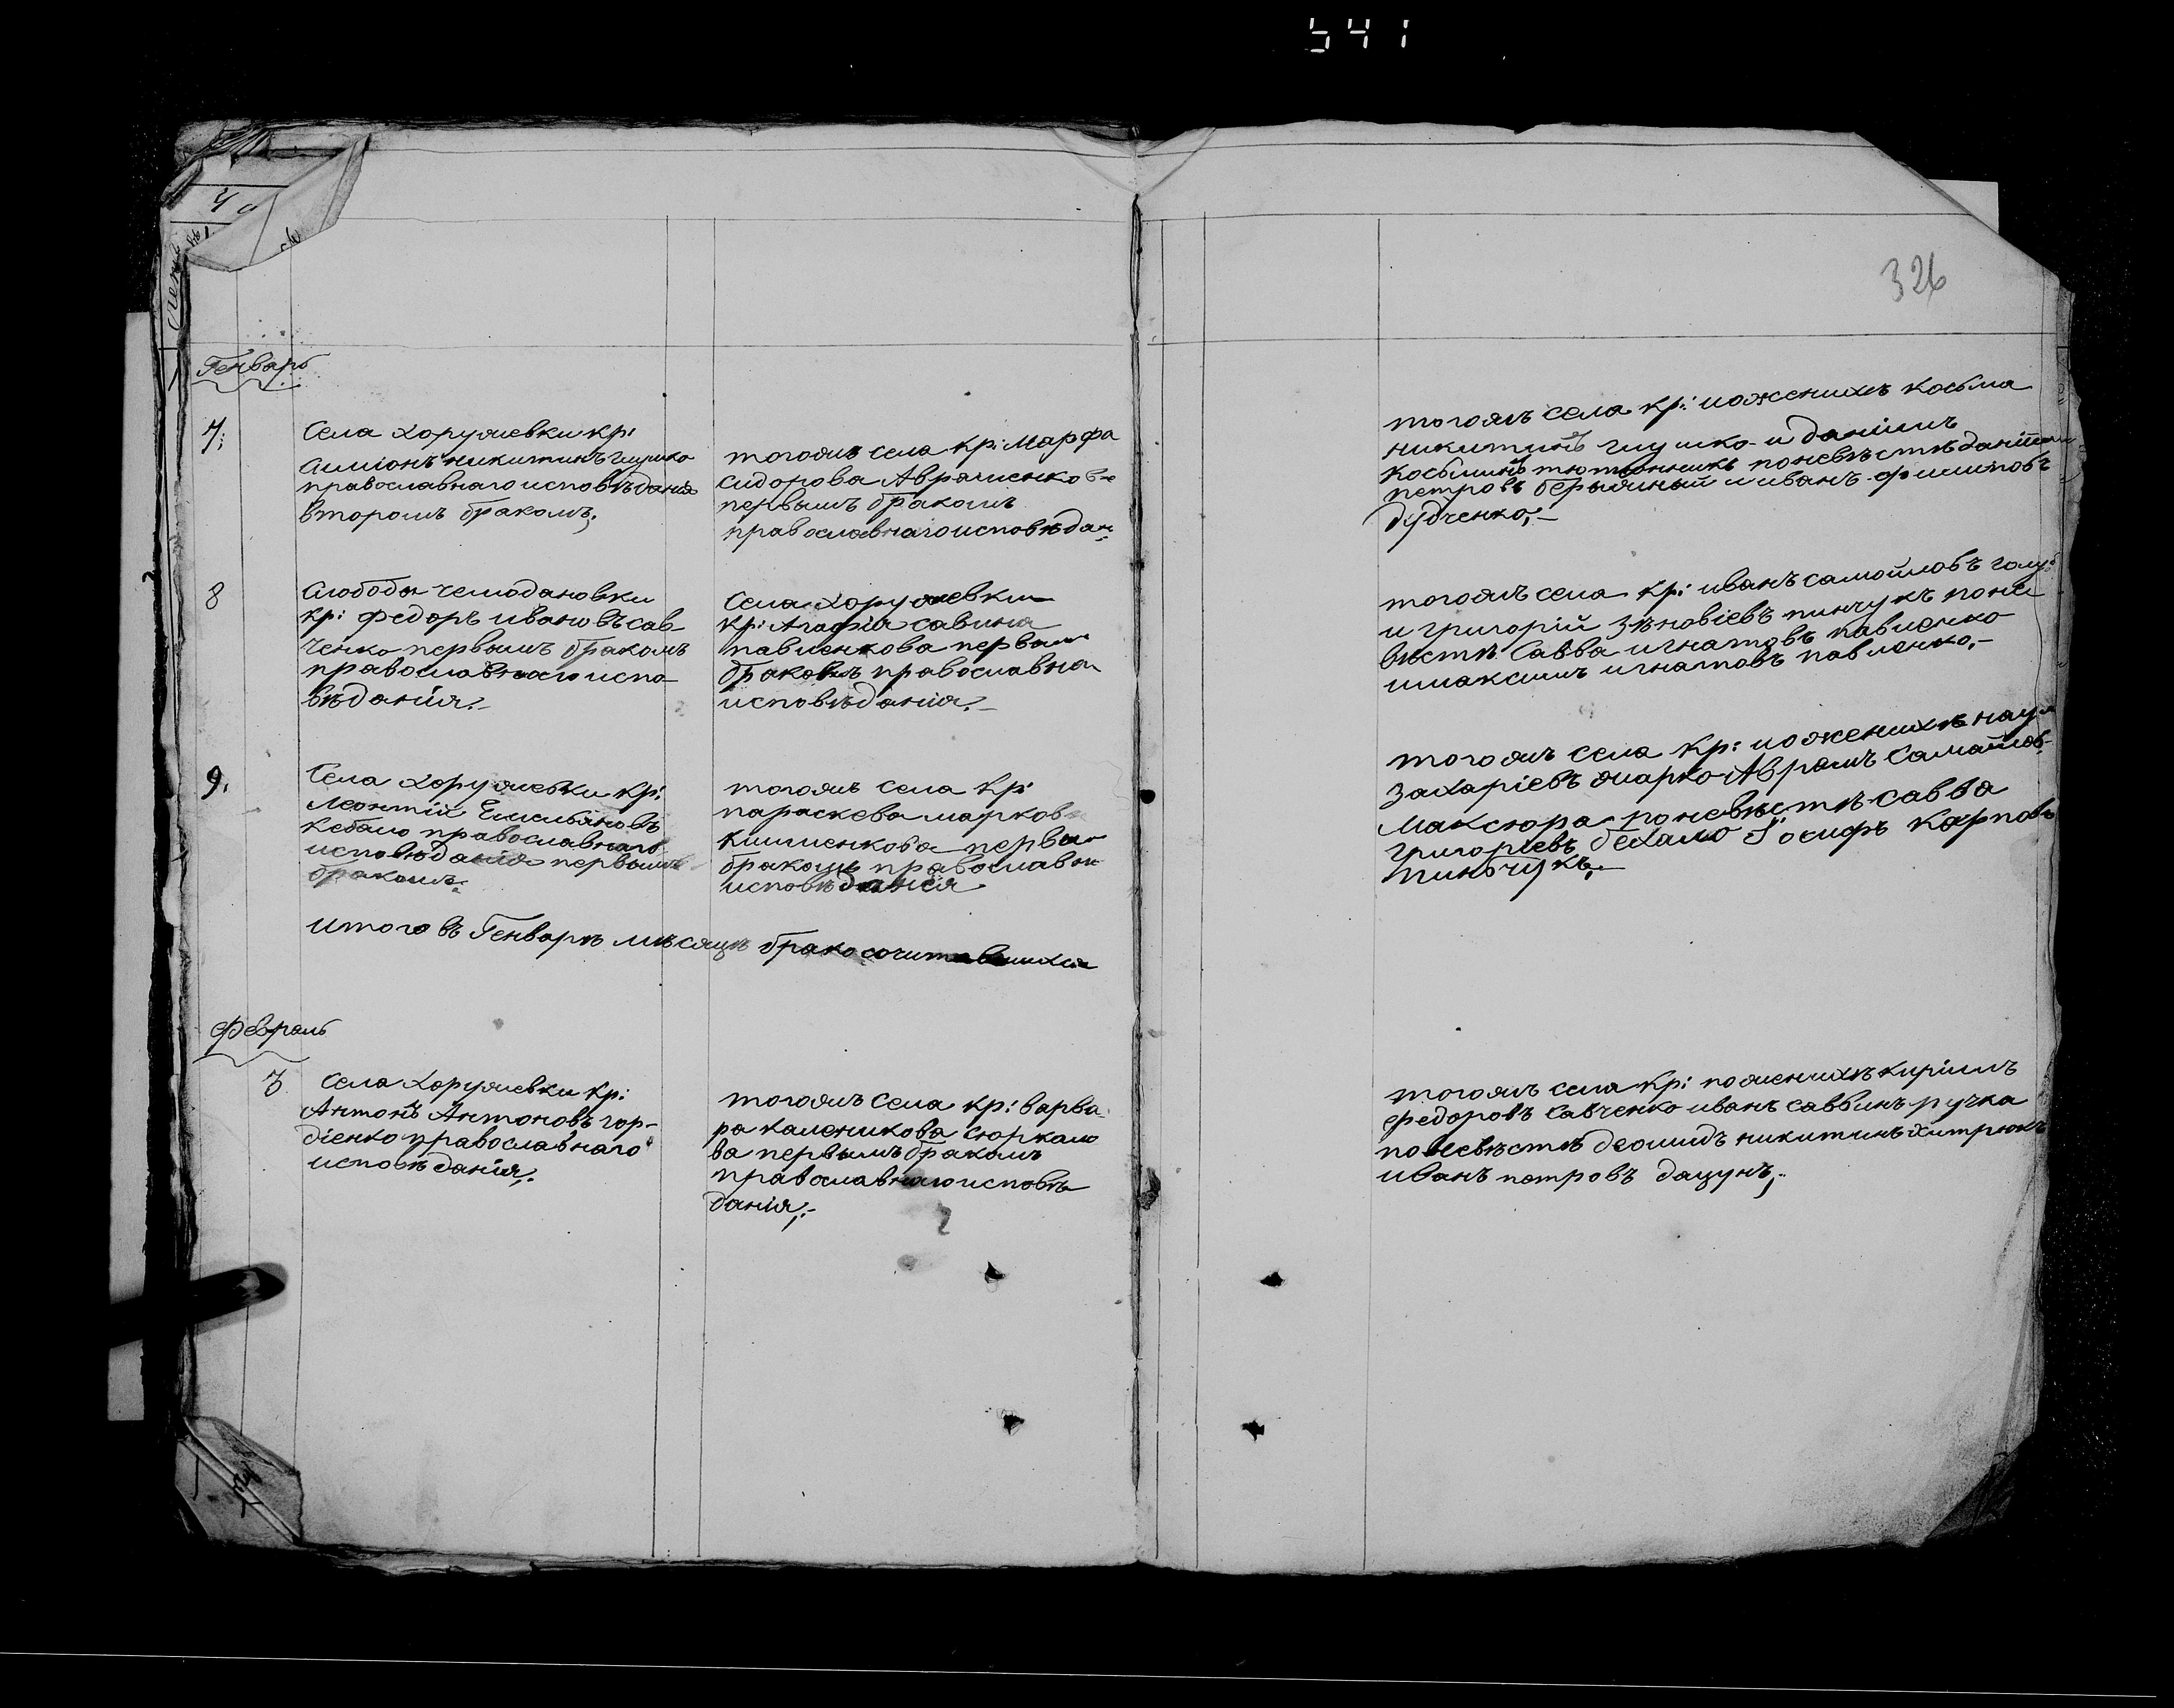 541
326
Генварь
7.
Села Хоружевки кр:
Симіонъ никитинъ глушко
православнаго исповѣданія
второмъ бракомъ;
тогожъ села кр: Марфа
сидорова Авраменкова
первымъ бракомъ
православнаго исповѣдан:
тогожъ села кр: по женихѣ косьма
никитинъ глушко и даніилъ
косьминъ
петровъ и иванъ филиповъ
дудченко;
8
слободы чемодановки
кр: федоръ ивановъ сав-
ченко первымъ бракомъ
православнаго испо-
вѣданія.
Села Хоружевки
кр: Агафія савина
павленкова первым
бракомъ православна
исповѣданія.
тогожъ села кр: иванъ самойловъ
и григорій зѣновіевъ пинчукъ поне
вѣстѣ Савва игнатовъ павленко
и максимъ игнатовъ павленко.
9.
Села Хоружевки кр:
Леонтій Емельяновъ
кебало православнаго
исповѣданія первымъ
бракомъ.
тогожъ села кр:
параскева маркова
клименкова перва
бракомъ православн
исповѣданія
тогожъ села кр: по женихѣ
Захаріевъ Аврамъ Самойлов
Максюра по невѣстѣ савва
григоріевъ бехало Іосифъ карповъ
пиньчукъ.
итого въ Генварѣ мѣсяцѣ бракосочитавшихся
февраль
3
Села Хоружевки кр:
Антонъ Антоновъ гор-
діенко православнаго
исповѣданія.
тогожъ Села кр: варва
ра каленикова сюркало
ва первымъ бракомъ
православнаго исповѣ
данія;
тогожъ села кр: по женихѣ кирилъ
федоровъ Савченко иванъ саввинъ ручка
по невѣстѣ деомидъ никитинъ хитрюкъ
иванъ петровъ дацунъ;